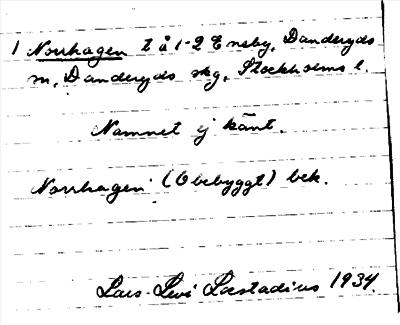 1 Norrhagen t å 1-2 Eneby, Danderyds
sn, Danderyds skg, Stockholms l.
Namnet ej känt.
Norrhagen (Obebyggt) bek.
Lars-Levi Læstadius 1934.